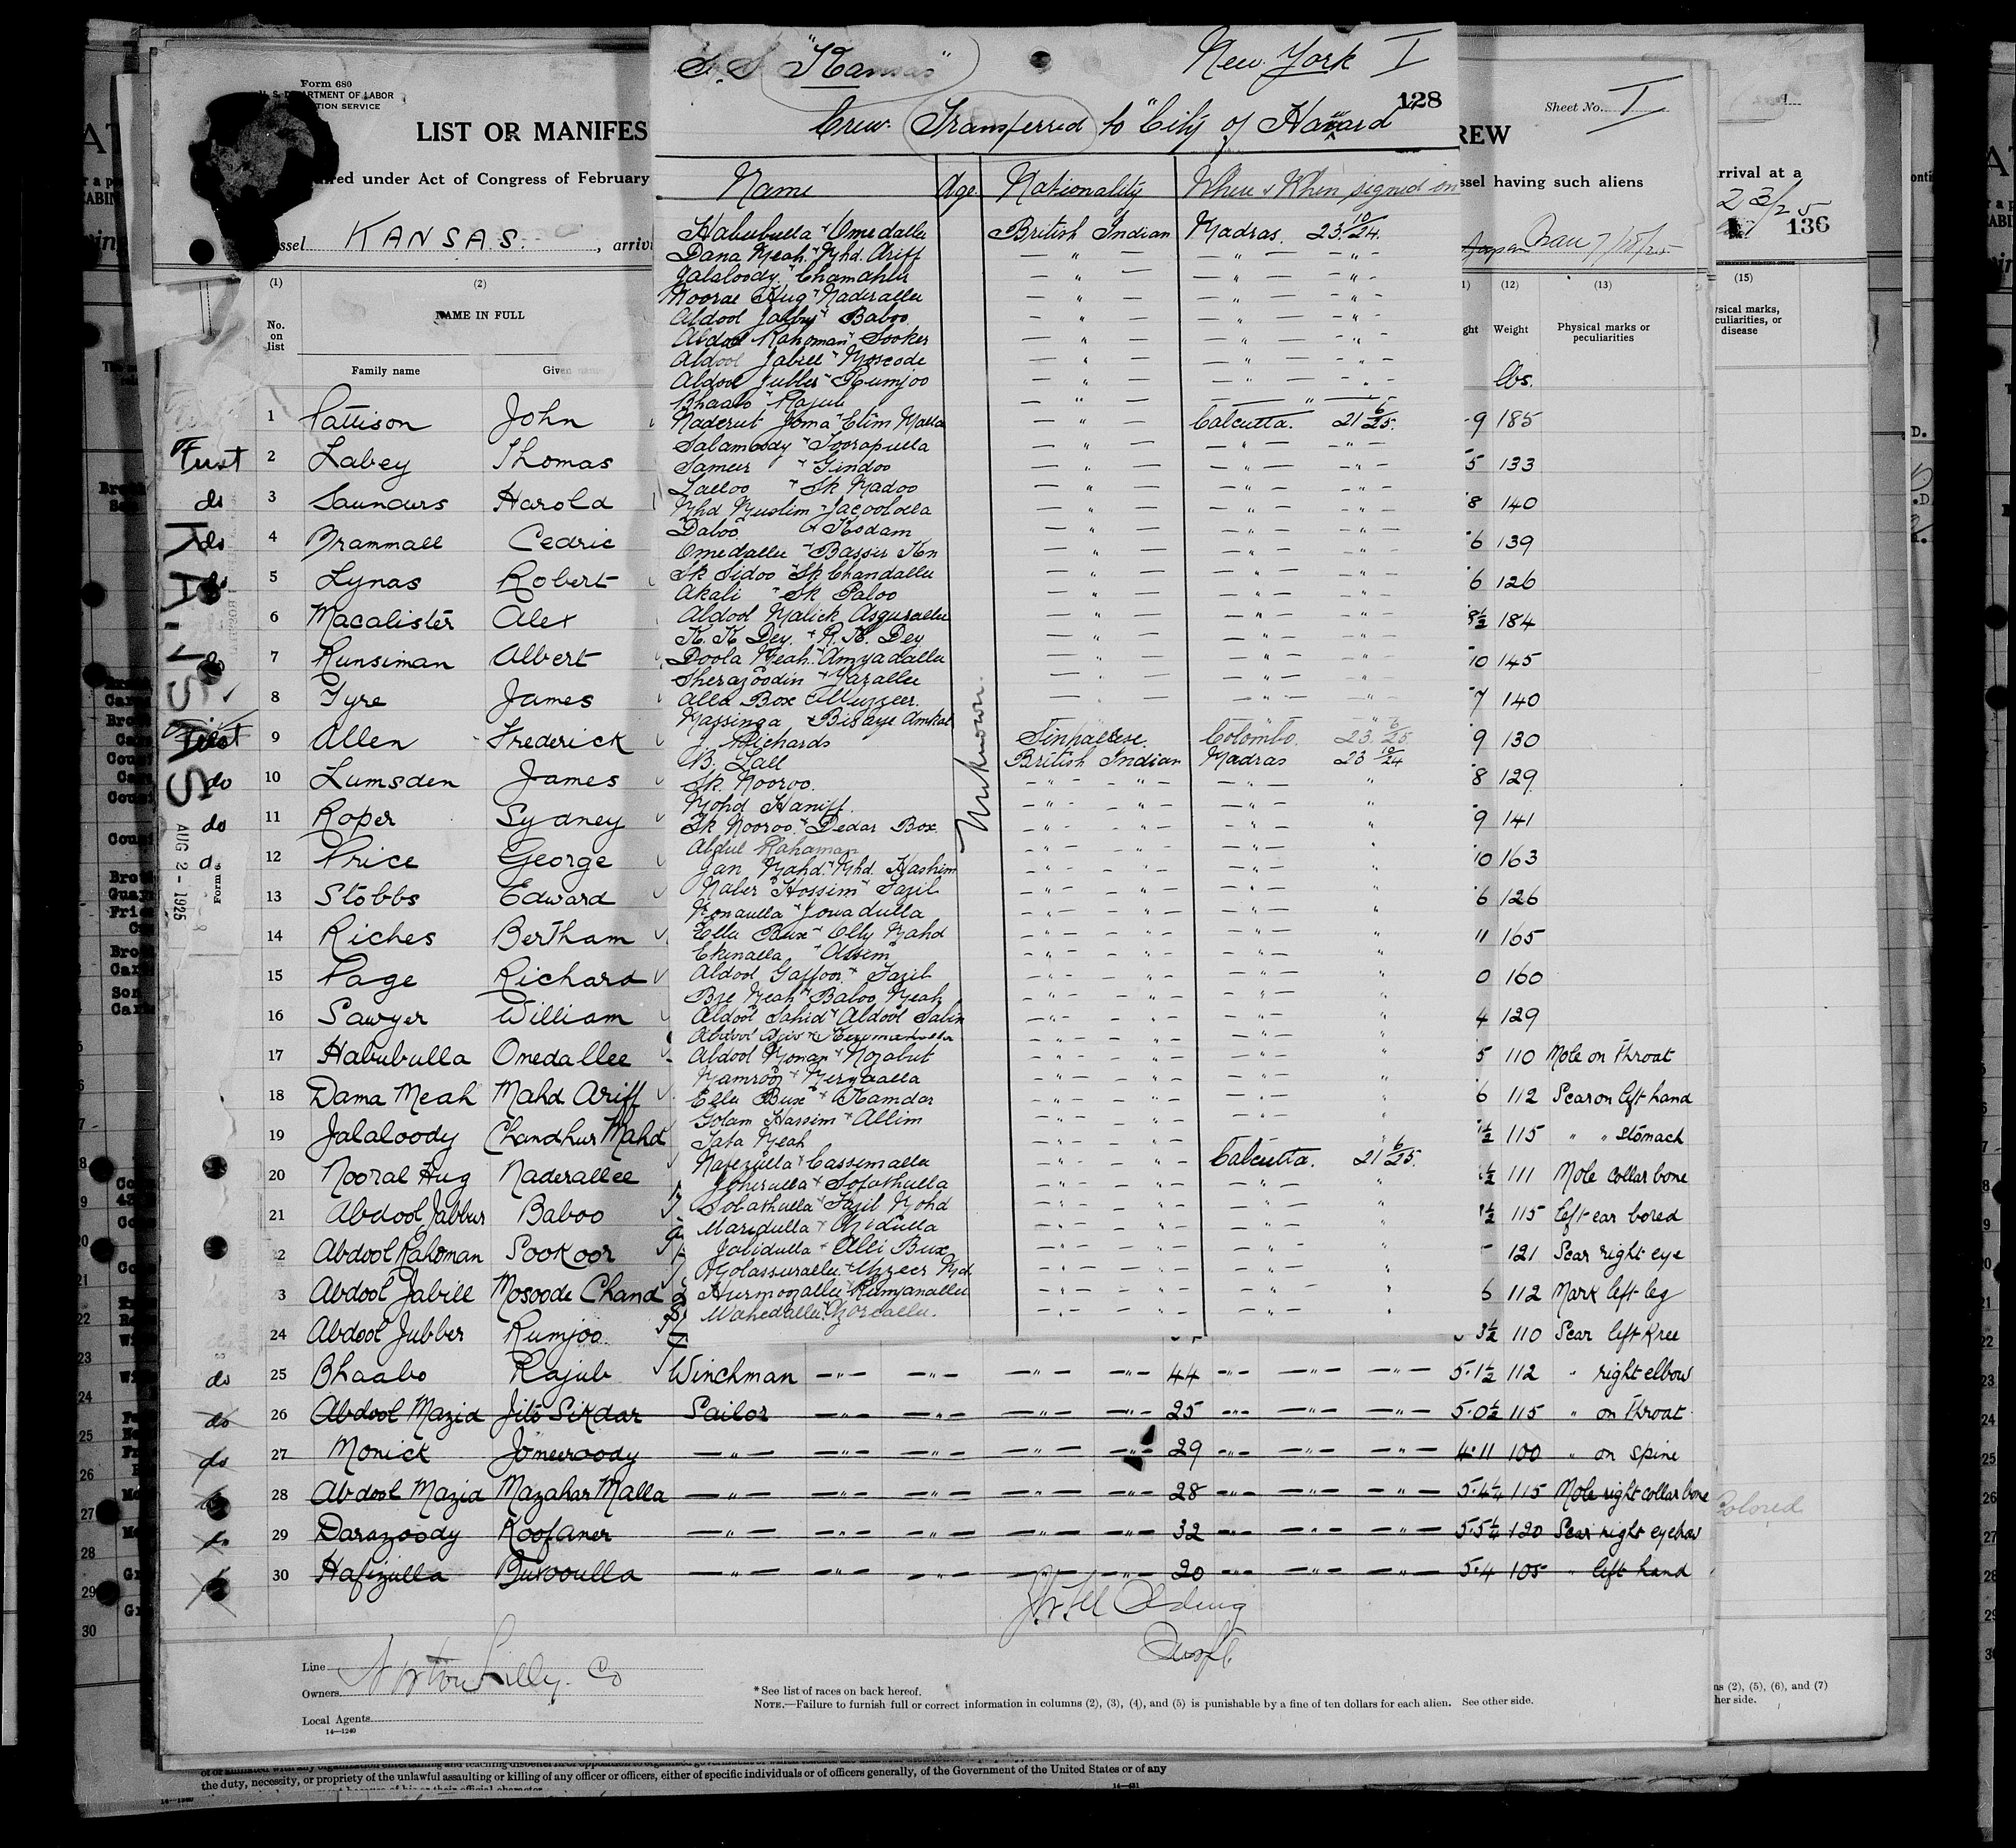 S.S. "Kansas" New York I
128
Crew Transferred to "City of Harvard"
Name Age Nationality Where & When signed on
Habubulla + Omedallu British Indian Madras. 23 10/24.
Dana Meah + Mhd. Ariff
Jalaloody + Chamahlu
Noorae Hug + Naderallu
Abdool Jabby + Baboo
Abdool Rahoman + Sooker
Abdool Jabell + Moscode
Abdool Jubber + Rumjoo
Bhaabo + Rajub
Naderut Joma + Elim Malla Calcutta. 21 6/25.
Salamoody + Soorapulla
Sameer + Gindoo
Lalloo + Sk Madoo
Mhd Muslim + Jacoololla
Daloo + Kodam
Omedallu + Basser Kn
Sk Sidoo + Sk Chandallu
Akali + Sk Paloo
Abdool Malick Asgurallu
K. K. Dey. + R. K. Dey
Doola Meah + Amyadallu
Sherazoodin + Yazallu
Alla Box + Muzzeer.
Massinga + Bisaye Amkat
Richards Sinhalese. Colombo. 23 6/25
B. Lall British Indian Madras 23 10/24
Sk. Nooroo.
Mohd Haniff.
Sk Nooroo + Dedar Box.
Abdul Rahaman
Jan Mahd + Mhd. Hashim
Naber Hossim + Fazil
Monaulla + Jowadulla
Ella Bux + Elly Mahd
Ekinalla + Assim
Abdool Gaffoor + Fazil
Bre Meah + Baloo Meah
Abdool Sahid + Abdool Sabin
Abdool Moman + Mozabut
Ella Bux + Kamdar
Golam Hassim + Allim
Taba Meah
Nafezulla + Cassimalla Calcutta. 21 6/25.
Joherulla + Sofathulla
Sobathulla + Fazil Mohd
Maridulla + Ozidulla
Jabidulla + Alli Bux
Golassurallu + Uzeer Md
Hurmozallu + Rumjanallu
Wahedallu + Gorcallu.
Unknown.
Form 680
U. S. DEPARTMENT OF LABOR
LIST OR MANIFES
REW
Sheet No. I
red under Act of Congress of February
ssel having such aliens
rrival at a
23/25
136
ssel KANSAS , arrivi
7/18/25
(1) (2) (12) (13) (15)
No. on list
NAME IN FULL
ght Weight Physical marks or peculiarities
ysical marks, culiarities, or disease
Family name Given name
lbs.
1 Pattison John 9 185
First 2 Labey Thomas 5 133
do 3 Saunders Harold 8 140
do 4 Brammall Cedric 6 139
do 5 Lynas Robert 6 126
6 Macalister Alex 8½ 184
do 7 Runsiman Albert 10 145
8 Tyre James 7 140
First 9 Allen Frederick 9 130
do 10 Lumsden James 8 129
do 11 Roper Sydney 9 141
12 Price George 10 163
13 Stobbs Edward 6 126
14 Riches Bertham 11 165
15 Page Richard 0 160
16 Sawyer William 4 129
17 Habubulla Omedallee 5 110 Mole on Throat
18 Dama Meah Mahd Ariff 6 112 Scar on left hand
19 Jalaloody Chandhur Mahd ½ 115 " " Stomach
20 Nooral Hug Naderallee ½ 111 Mole collar bone
21 Abdool Jabbur Baboo ½ 115 left ear bored
22 Abdool Rahoman Sookoor 121 Scar right eye
3 Abdool Jabill Mosoode Chand 6 112 Mark left leg
24 Abdool Jubber Rumjoo 3½ 110 Scar left Knee
do 25 Bhaabo Rajub Winchman 44 5·1½ 112 " right elbow
do 26 Abdool Mazid Jito Sikdar Sailor 25 5·0½ 115 " on Throat
do 27 Monick Jomeeroody 29 4·11 100 " on Spine
do 28 Abdool Mazid Mazahar Malla 28 5·4¼ 115 Mole right collar bone
do 29 Darazoody Koofaner 32 5·5¼ 120 Scar right eyebrow
30 Hafizulla Burooulla 20 5·4 105 " left hand
KANSAS
AUG 2 - 1925
Colored
Line Norton Lilly Co
Owners
Local Agents
14—1240
*See list of races on back hereof.
NOTE.—Failure to furnish full or correct information in columns (2), (3), (4), and (5) is punishable by a fine of ten dollars for each alien. See other side.
ns (2), (5), (6), and (7)
her side.
the duty, necessity, or propriety of the unlawful assaulting or killing of any officer or officers, either of specific individuals or of officers generally, of the Government of the United States or of any